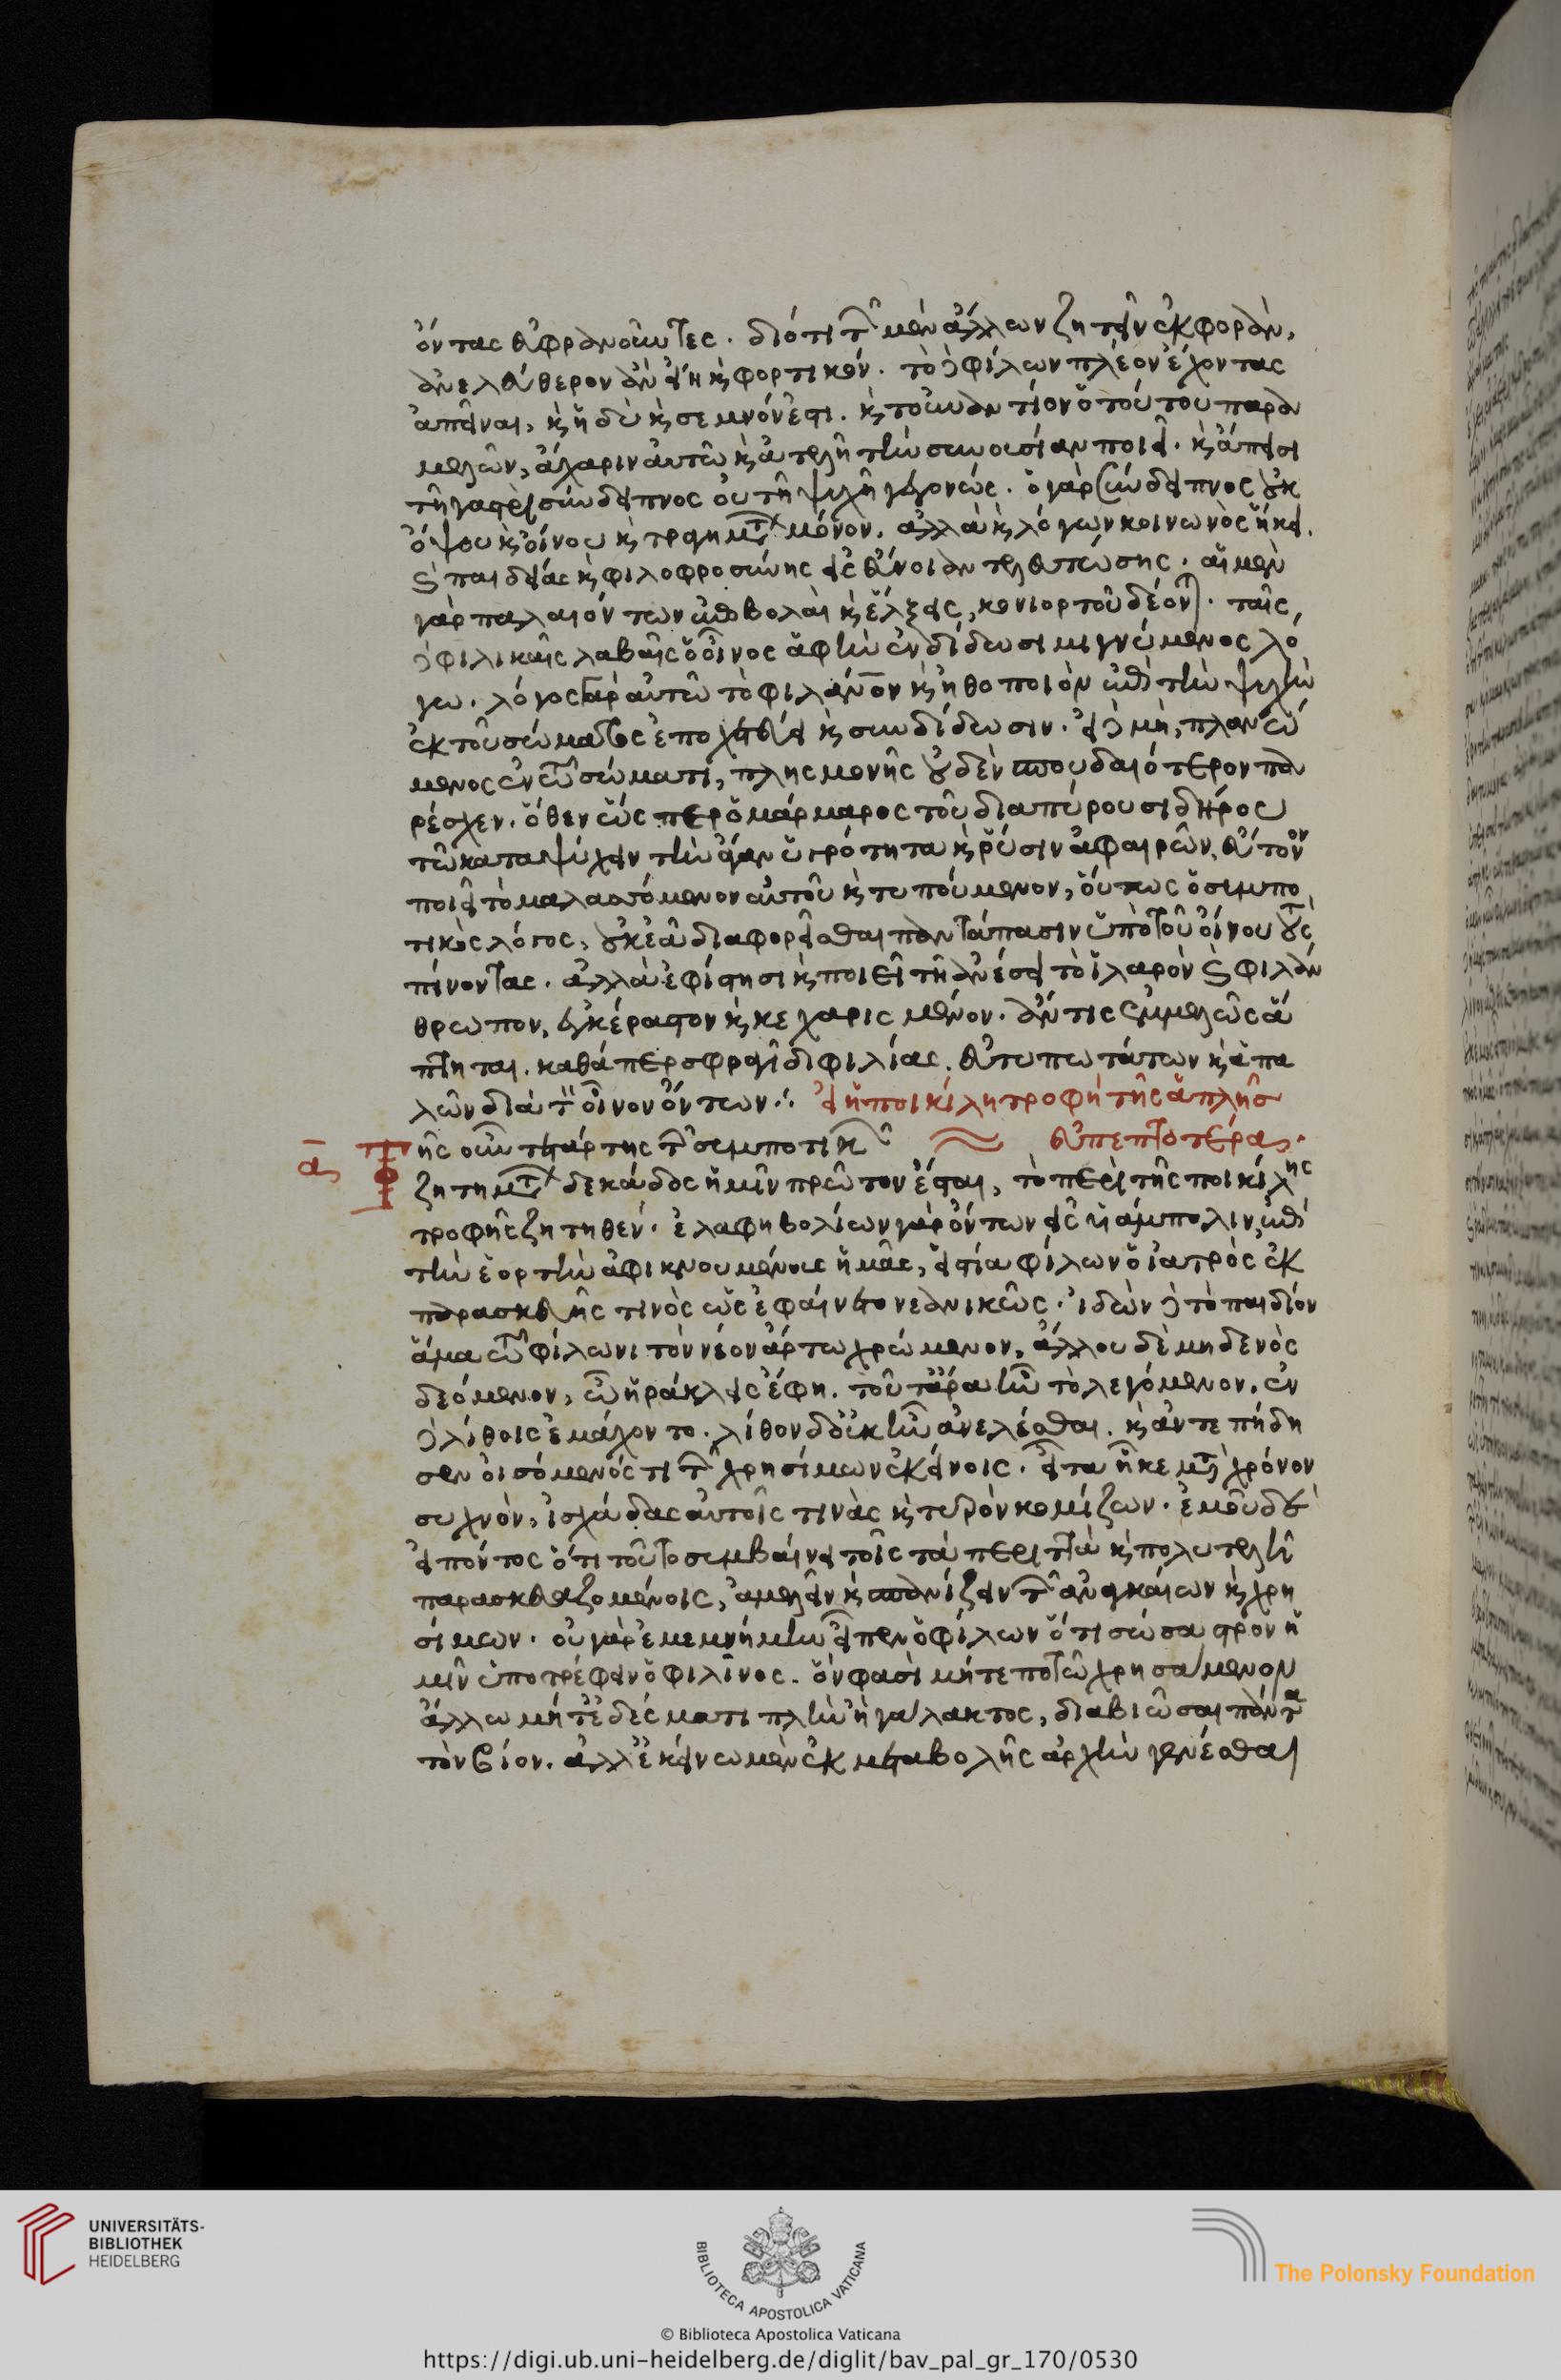 ὄντας εὐφρανοῦντες. διότι τῶν μὲν ἄλλων ζητεῖν ἐκφορὰν,
ἀνελεύθερον ἂν εἴη καὶ φορτικόν. τὸ δὲ φίλων πλέον ἔχοντας
ἀπεῖναι, καὶ ἡδὺ καὶ σεμνόν ἐστι. καὶ τοὐναντίον ὁ τούτου παρα
μελῶν, ἄχαριν αὐτῶ καὶ ἀτελῆ τὴν συνουσίαν ποιεῖ. καὶ ἄπεισι
τῆ γαστρὶ σύνδειπνος οὐ τῆ ψυχῆ γεγονώς. ὁ γὰρ σύνδειπνος οὐκ
ὄψου καὶ οἴνου καὶ τραγημάτων μόνον, ἀλλὰ καὶ λόγων κοινωνὸς ἥκει.
καὶ παιδείας καὶ φιλοφροσύνης εἰς εὔνοιαν τελευτώσης. αἱ μὲν
γὰρ παλαιόντων ἐπιβολαὶ καὶ ἕλξεις, κονιορτοῦ δέονται. ταῖς
δὲ φιλικαῖς λαβαῖς ὁ οἶνος ἁφὴν ἐνδίδωσι μιγνύμενος λό
γω. λόγος γὰρ αὐτῶ τὸ φιλάνθρωπον καὶ ἠθοποιὸν ἐπὶ τὴν ψυχὴν
ἐκ τοῦ σώματος ἐποχετεύει καὶ συνδίδωσιν. εἰ δὲ μὴ, πλανώ
μενος ἐν τῶ σώματι, πλησμονῆς οὐδὲν σπουδαιότερον πα
ρέσχεν. ὅθεν ὥσπερ ὁ μάρμαρος τοῦ διαπύρου σιδήρου
τῶ καταψύχειν τὴν ἄγαν ὑγρότητα καὶ ῥύσιν ἀφαιρῶν, εὔτονον
ποιεῖ τὸ μαλασσόμενον αὐτοῦ καὶ τυπούμενον, οὕτως ὁ συμπο
τικὸς λόγος, οὐκ ἐᾶ διαφορεῖσθαι παντάπασιν ὑπὸ τοῦ οἴνου τοὺς
πίνοντας. ἀλλὰ ἐφίστησι καὶ ποιεῖ τῆ ἀνέσει τὸ ἱλαρὸν καὶ φιλάν
θρωπον, εὐκέραστον καὶ κεχαρισμένον. ἄν τις ἐμμελῶς ἅ
πτηται. καθάπερ σφραγῖδι φιλίας. εὐτυπωτάτων καὶ ἁπα
λῶν διὰ τὸν οἶνον ὄντων ∴ εἰ ἡ ποικίλη τροφὴ τῆς ἁπλῆσ
α Τῆς οὖν τετάρτης τῶν συμποτικῶν εὐπεπτοτέρας.
ζητημάτων δεκάδος ἡμῖν πρῶτον ἔσται, τὸ περὶ τῆς ποικίλης
τροφῆς ζητηθέν. ἐλαφηβολίων γὰρ ὄντων εἰς ὑάμπολιν, ἐπὶ
τὴν ἑορτὴν ἀφικνουμένους ἡμᾶς, εἱστία φίλων ὁ ἰατρὸς ἐκ
παρασκευῆς τινὸς ὡς ἐφαίνετο νεανικῶς. ἰδὼν δὲ τὸ παιδίον
ἅμα τῶ φίλωνι τὸν νέον ἄρτω χρώμενον, ἄλλου δὲ μηδενὸς
δεόμενον, ὦ ἡράκλεις ἔφη. τοῦτ' ἄρα ἦν τὸ λεγόμενον, ἐν
δὲ λίθοις ἐμάχοντο. λίθον δ' οὐκ ἦν ἀνελέσθαι. καὶ ἀντεπήδη
σεν οἰσόμενός τι τῶν χρησίμων ἐκείνοις. εἶτα ἧκε μετὰ χρόνον
συχνὸν, ἰσχάδας αὐτοῖς τινὰς καὶ τυρὸν κομίζων. ἐμοῦ δὲ
εἰπόντος ὅτι τοῦτο συμβαίνει τοῖς τὰ περιττὰ καὶ πολυτελῆ
παρασκευαζομένοις, ἀμελεῖν καὶ σπανίζειν τῶν ἀναγκαίων καὶ χρη
σίμων. οὐ γὰρ ἐμεμνήμην εἶπεν ὁ φίλων ὅτι σώσαστρον ἡ
μῖν ὑποτρέφειν ὁ φιλῖνος. ὅν φασὶ μήτε ποτῶ χρησάμενον
ἄλλω μήτ' ἐδέσματι πλὴν ἢ γάλακτος, διαβιῶσαι πάντα
τὸν βίον. ἀλλ' ἐκείνω μὲν ἐκ μεταβολῆς ἀρχὴν γενέσθαι
UNIVERSITÄTS-
BIBLIOTHEK
HEIDELBERG
BIBLIOTECA APOSTOLICA VATICANA
The Polonsky Foundation
© Biblioteca Apostolica Vaticana
https://digi.ub.uni-heidelberg.de/diglit/bav_pal_gr_170/0530